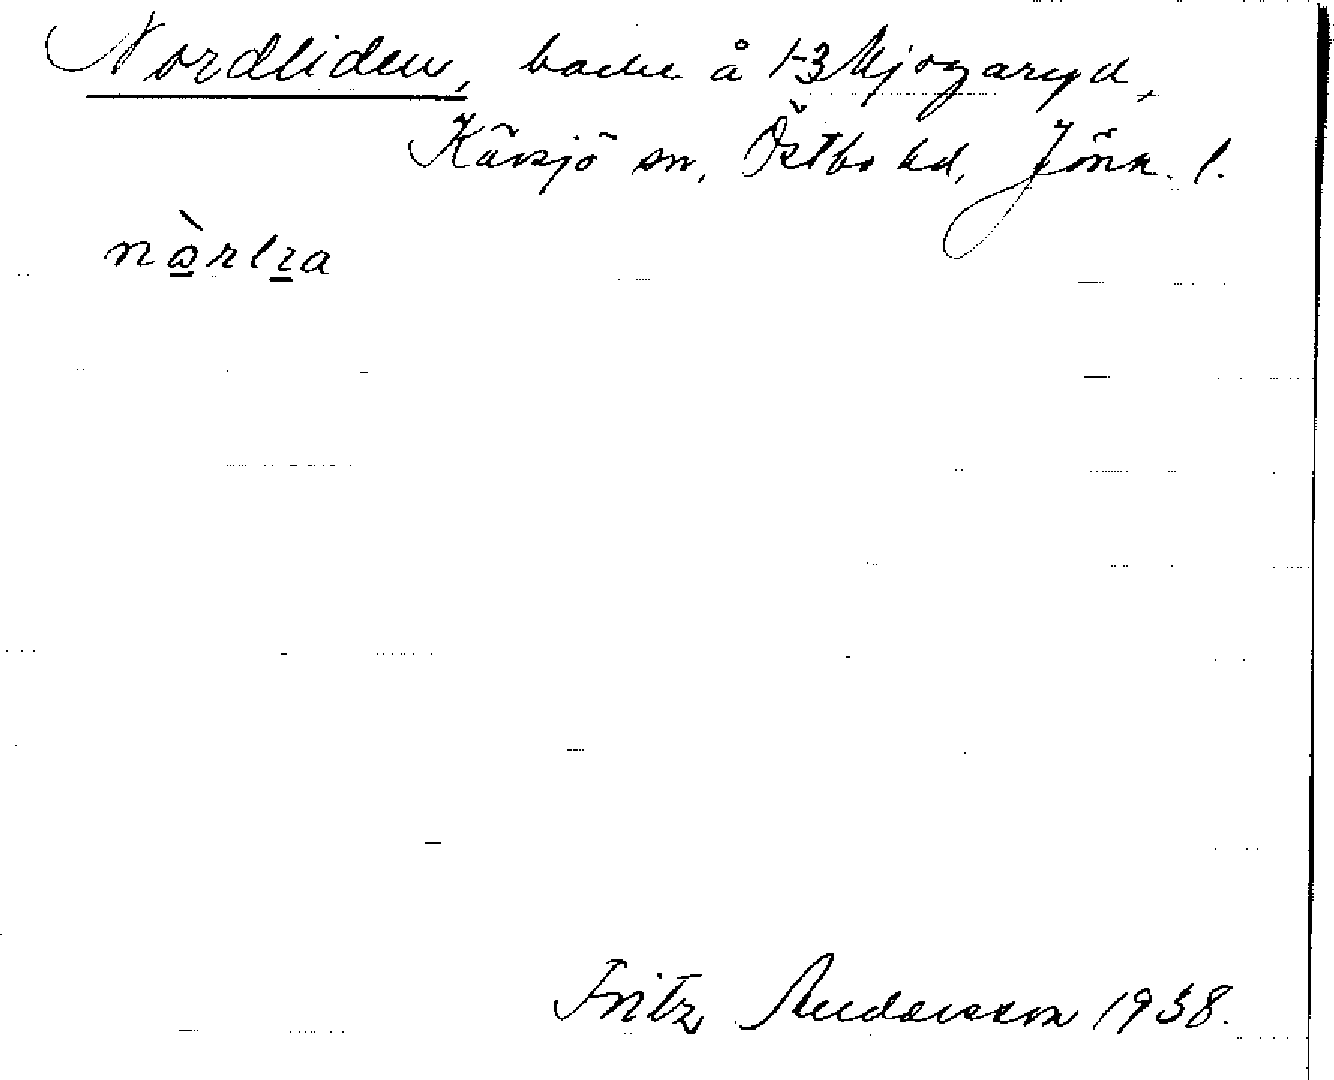 Nordliden, backe å 1-3 Mjogaryd,
Kävsjö sn, Östbo hd, Jönk. l.
nàrlıa
Fritz Andersson 1938.